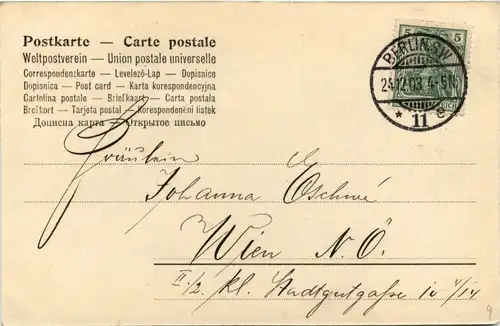 Postkarte — Carte postale
Weltpostverein — Union postale universelle
Correspondenzkarte — Levelező-Lap — Dopisnice
Dopisnica — Post card — Karta korespondencyjna
Cartolina postale — Briefkaart — Carta postala
Brefkort — Tarjeta postal — Korespondenčni listek
Дописна карта — Открытое письмо
5 5
BERLIN S.W.
24.12.03. 4-5N.
* 11 e.
Fräulein
Johanna
Wien N.Ö.
II/2. Kl. Stadtgutgaße 4/14
9